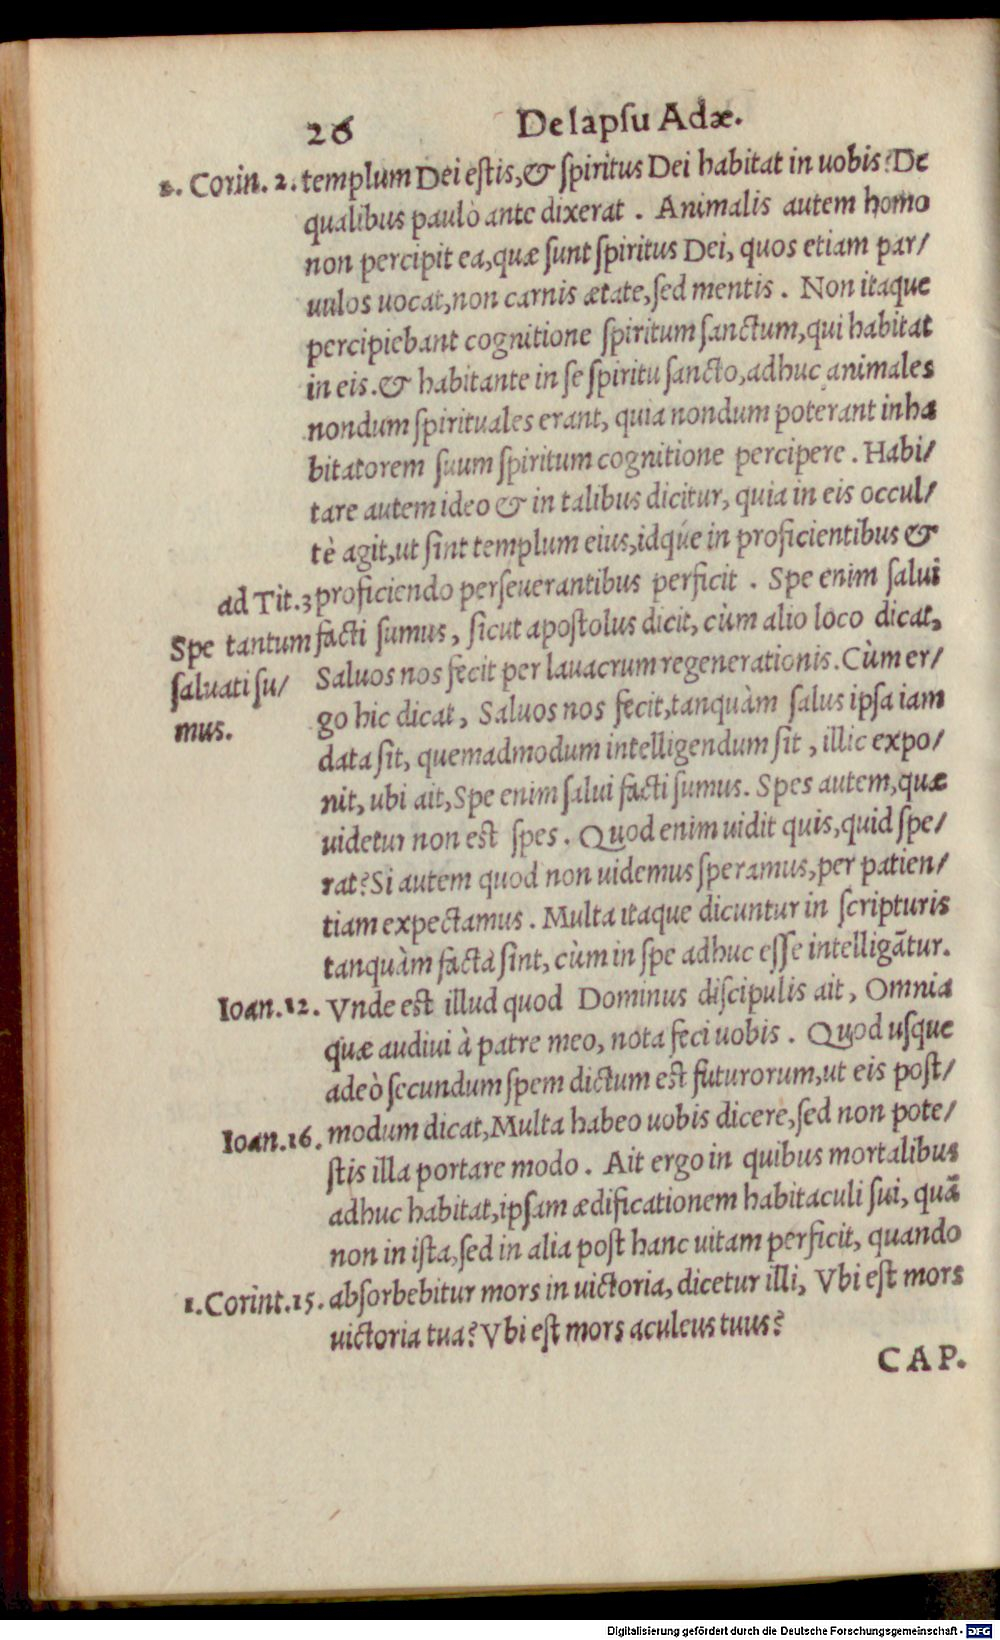 26 De lapſu Adæ.
1. Corin. 2. templum Dei eſtis, & ſpiritus Dei habitat in uobis? De
qualibus paulò ante dixerat. Animalis autem homo
non percipit ea, quæ ſunt ſpiritus Dei, quos etiam par/
uulos uocat, non carnis ætate, ſed mentis. Non itaque
percipiebant cognitione ſpiritum ſanctum, qui habitat
in eis. & habitante in ſe ſpiritu ſancto, adhuc animales
nondum ſpirituales erant, quia nondum poterant inha
bitatorem ſuum ſpiritum cognitione percipere. Habi/
tare autem ideo & in talibus dicitur, quia in eis occul/
tè agit, ut ſint templum eius, idq́ue in proficientibus &
ad Tit. 3 proficiendo perſeuerantibus perficit. Spe enim ſalui
Spe tantum facti ſumus, ſicut apoſtolus dicit, cùm alio loco dicat,
ſaluati ſu/ Saluos nos fecit per lauacrum regenerationis. Cùm er/
mus. go hic dicat, Saluos nos fecit, tanquàm ſalus ipſa iam
data ſit, quemadmodum intelligendum ſit, illic expo/
nit, ubi ait, Spe enim ſalui facti ſumus. Spes autem, quæ
uidetur non est ſpes. Quod enim uidit quis, quid ſpe/
rat? Si autem quod non uidemus ſperamus, per patien/
tiam expectamus. Multa itaque dicuntur in ſcripturis
tanquàm facta ſint, cùm in ſpe adhuc eſſe intelligātur.
Ioan. 12. Vnde est illud quod Dominus diſcipulis ait, Omnia
quæ audiui à patre meo, nota feci uobis. Quod uſque
adeò ſecundum ſpem dictum est futurorum, ut eis poſt/
Ioan. 16. modum dicat, Multa habeo uobis dicere, ſed non pote/
ſtis illa portare modo. Ait ergo in quibus mortalibus
adhuc habitat, ipſam ædificationem habitaculi ſui, quā
non in iſta, ſed in alia poſt hanc uitam perficit, quando
1. Corint. 15. abſorbebitur mors in uictoria, dicetur illi, Vbi eſt mors
uictoria tua? Vbi eſt mors aculeus tuus?
CAP.
Digitalisierung gefördert durch die Deutsche Forschungsgemeinschaft - DFG